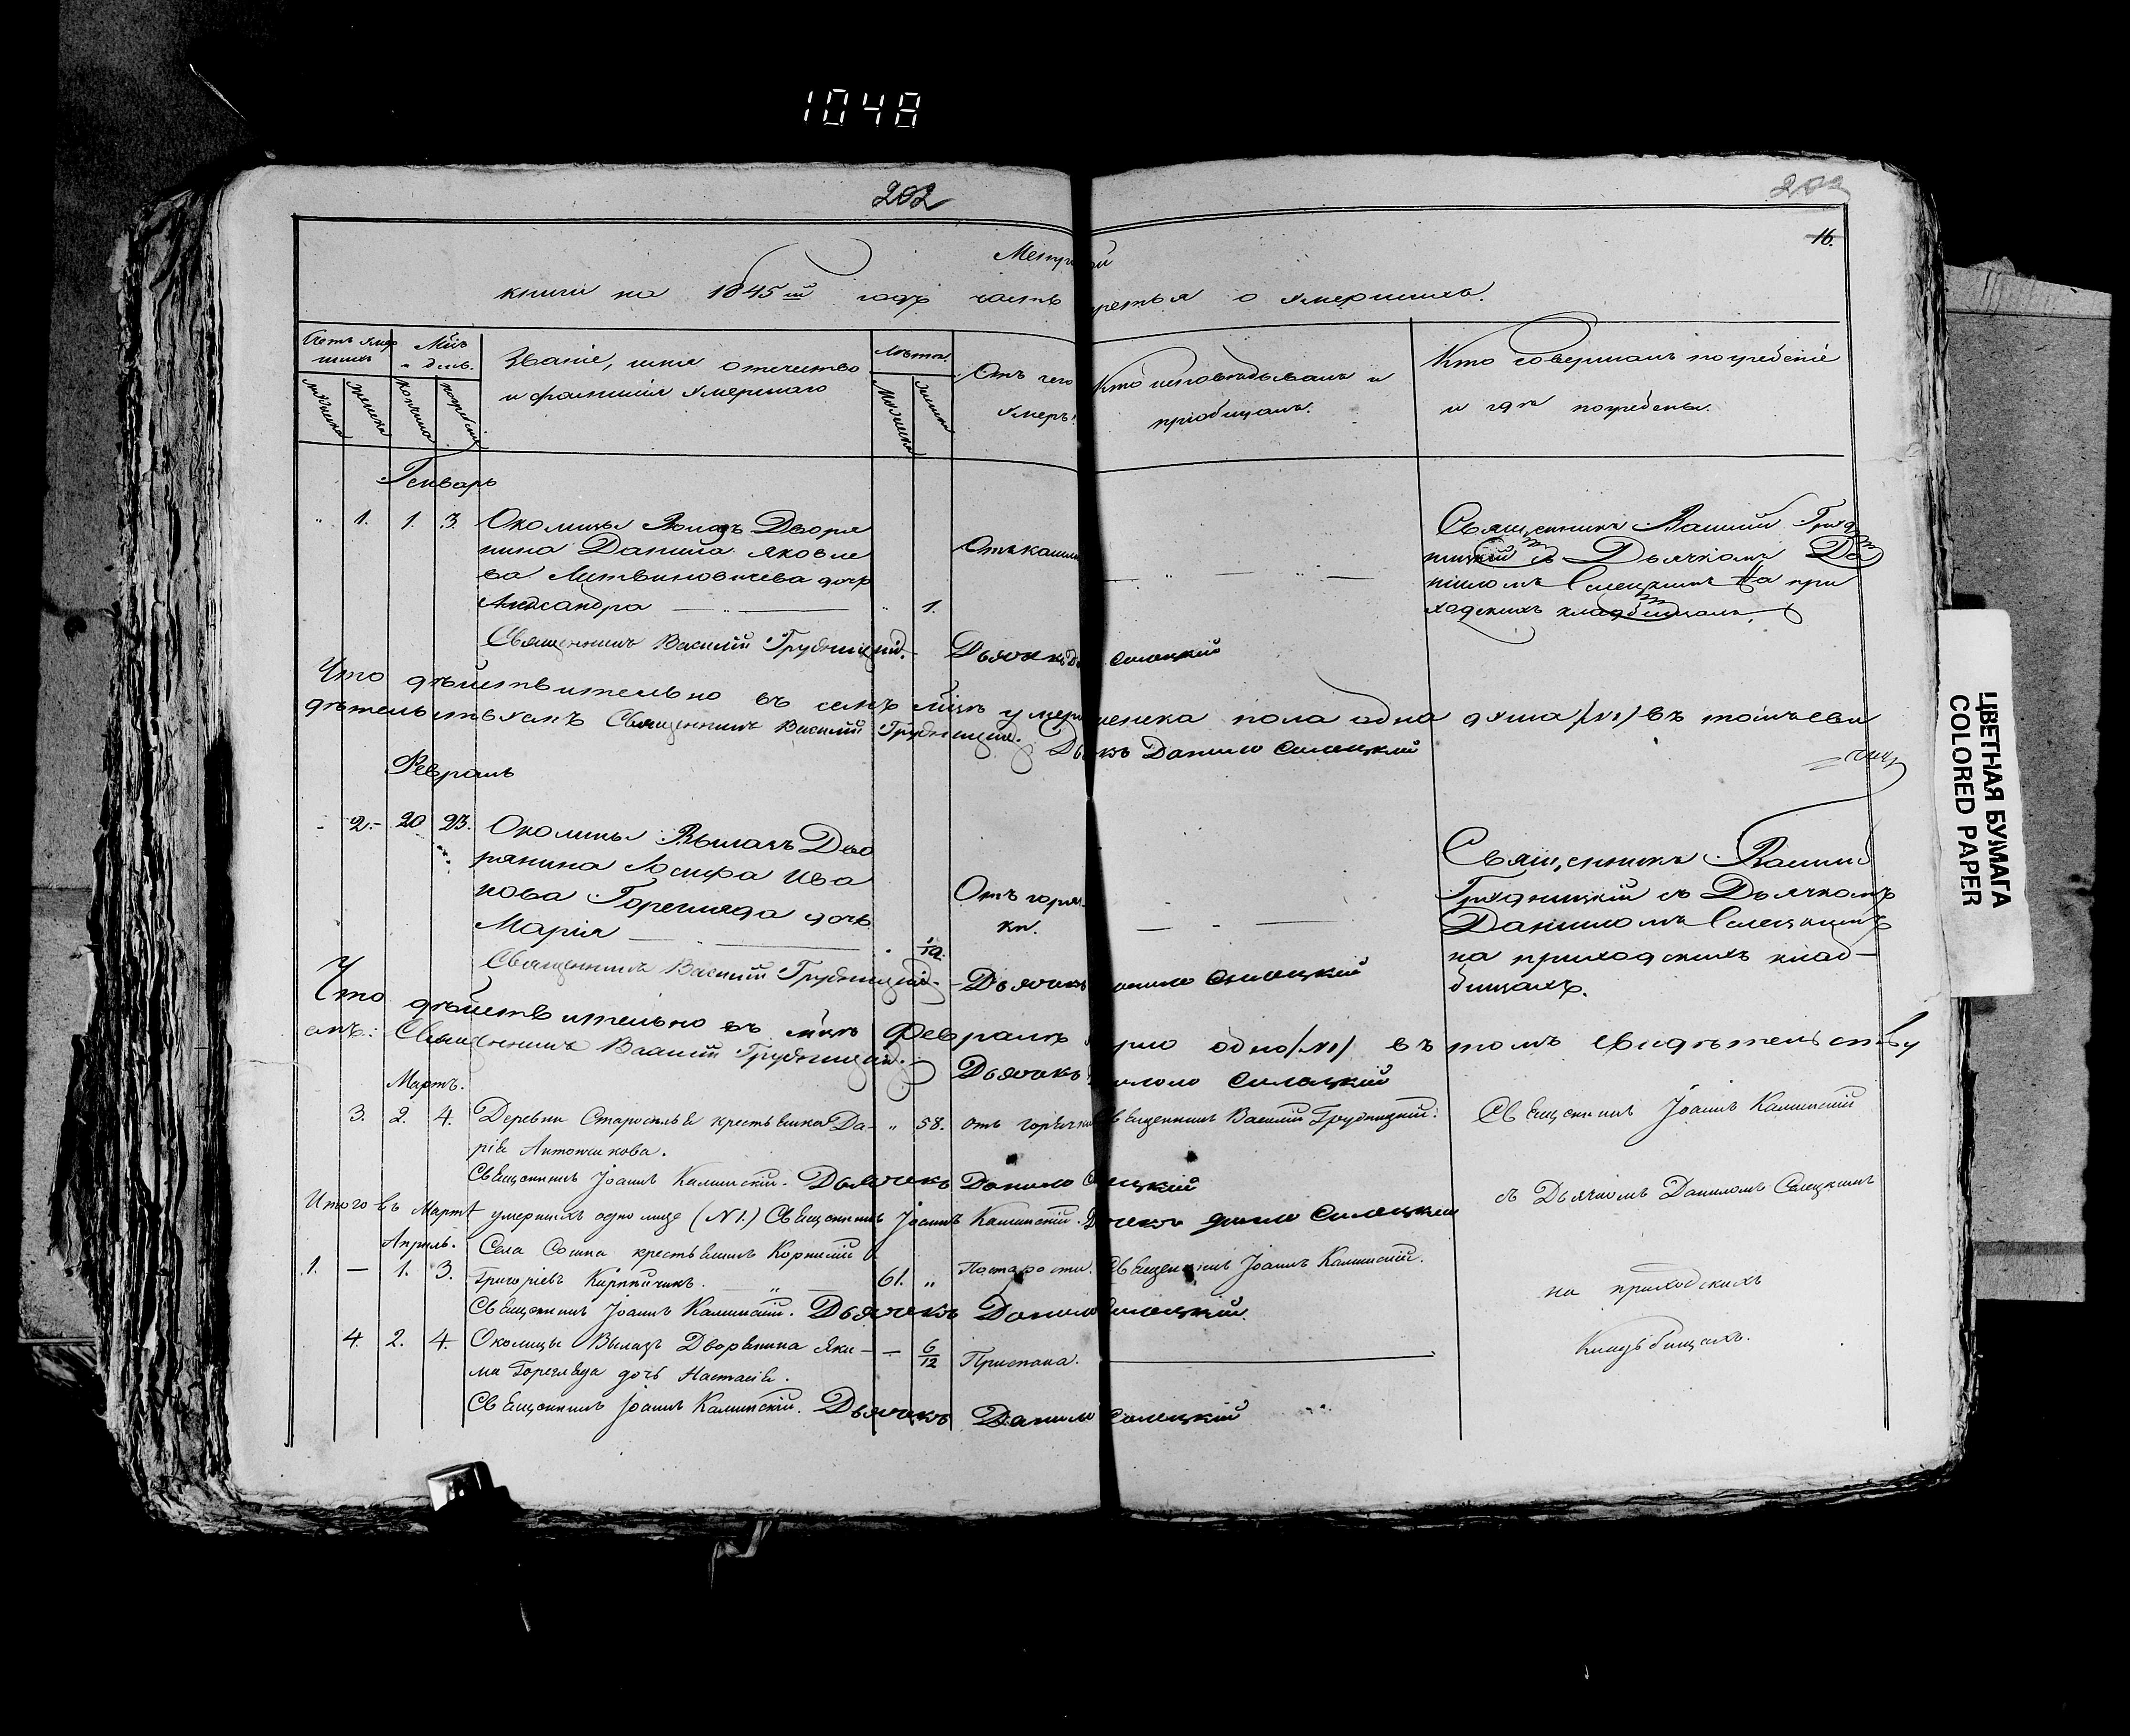 1048
202
16.
Метри ой
книги на 1845й годъ часть третья о умершихъ.
Счетъ умер
шихъ
Мѣц.
и день.
Званіе, имя отечество
и фамилія умершаго
Лѣта.
Отъ чего
умеръ.
Кто исповѣдывалъ и
пріобщалъ.
Кто совершалъ погребеніе
и гдѣ погребены.
мужеска
женска
кончина
погребенія
Мужеска
женска
Генварь
1. 1. 3. Околицы Дворя
нина Данила Яковле
ва Литвиновичева дочь
Александра 1.
Отъ кашля
Священникъ Василій Грудницкій съ Дьячкомъ Да
ниломъ Селецкимъ на при
ходскихъ кладбищахъ.
Священникъ Василій Грудницкій. Дьячекъ Селецкій
Что дѣйствительно въ семъ мцѣ умер женска пола одна душа /№1/ въ томъ сви
дѣтельствуемъ Священникъ Василій Грудницкій. Данило Селецкій
Февраль
2. 20 23. Околицы Вылазъ Дво
рянина Іосифа Ива
нова Горегляда дочь
Марія
Отъ горяч-
ки.
Священникъ Василій
Грудницкій съ Дьячкомъ
Даниломъ Селецкимъ
на приходскихъ клад-
бищахъ.
Священникъ Василій Грудницкій. Дьячекъ Данило Селецкій
Что дѣйствительно въ мцѣ Февралѣ умерло одно /№1/ въ томъ свидѣтельству
емъ: Священникъ Василій Грудницкій. Дьячекъ Данило Селецкій
Мартъ.
3. 2. 4. Деревни Староселья крестьянка Да- " 58. отъ горячки Священникъ Василій Грудницкій. Священникъ Іоаннъ Калинскій
рія Антончикова.
Священникъ Іоаннъ Калинскій. Дьячекъ Данило Селецкій
съ Дьячкомъ Даниломъ Селецкимъ
Итого въ Мартѣ умершихъ одно лице (№1.) Священникъ Іоаннъ Калинскій. Дьячекъ Данило Селецкій
Апрель. Села Сошна крестьянинъ Корнилій
1. — 1. 3. Григоріевъ Кирпичикъ. 61. " По старости. Священникъ Іоаннъ Калинскій.
на приходскихъ
Священникъ Іоаннъ Калинскій. Дьячекъ Данило Селецкій.
4. 2. 4. Околицы Вылазъ Дворянина Яки- — 6/12 Приспана.
кладбищахъ.
ма Горегляда дочь Настасія.
Священникъ Іоаннъ Калинскій. Дьячекъ Данило Селецкій
ЦВЕТНАЯ БУМАГА
COLORED PAPER